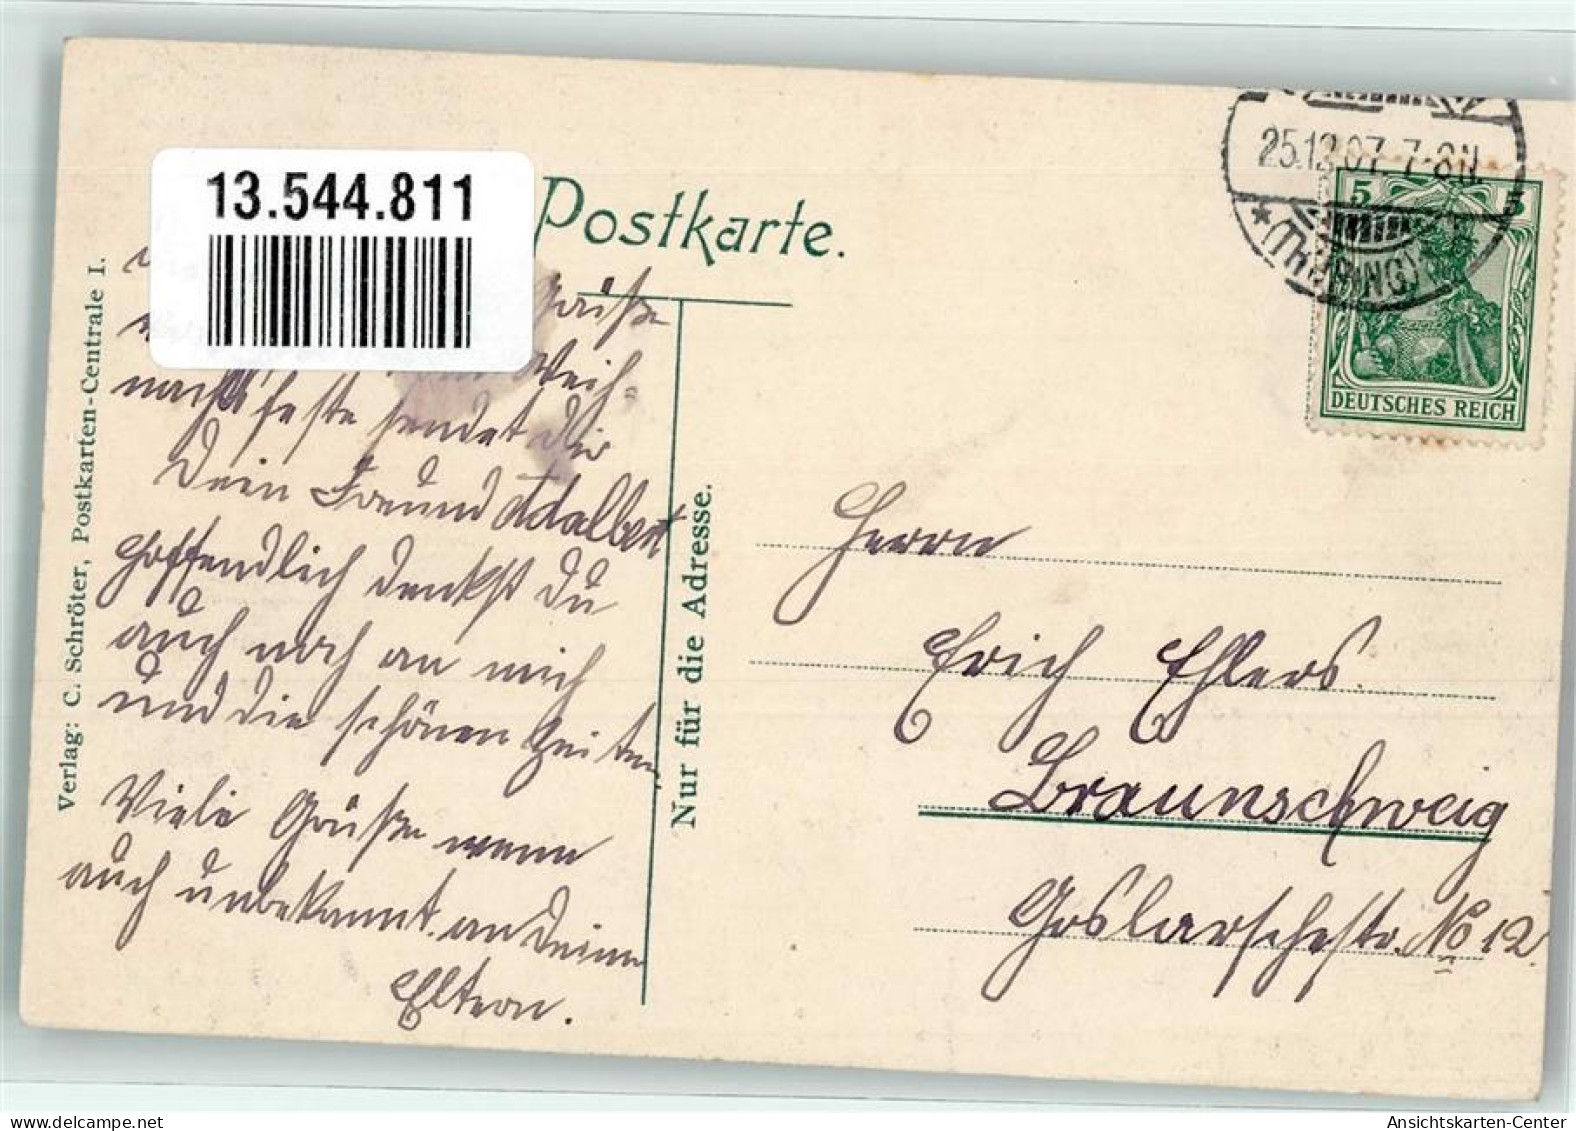 13.544.811
Postkarte.
25.12.07. 7-8N.
* (THÜRING)
5 5
DEUTSCHES REICH
Grüße
Weih-
nachtsfeste sendet dir
Dein Freund Adalbert
Hoffendlich denkst Du
auch noch an mich
und die schönen Zeiten
Viele Grüße wenn
auch unbekannt an Deine
Eltern.
Verlag: C. Schröter, Postkarten-Centrale I.
Nur für die Adresse.
Herrn
Erich Ehlers.
Braunschweig
Goslarschestr. No 12.
Ansichtskarten-Center